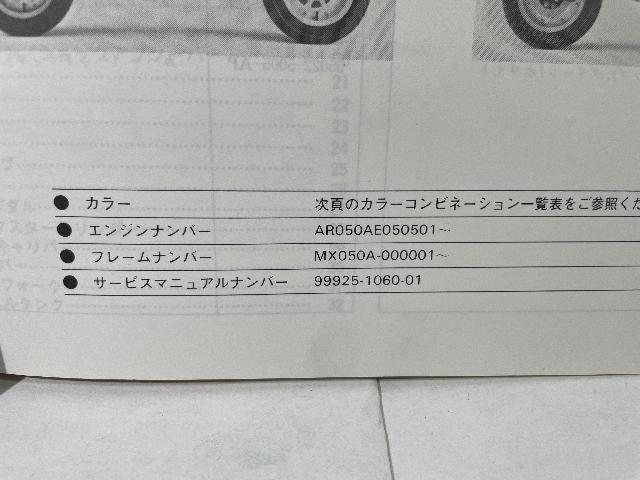 ● カラー 次頁のカラーコンビネーション一覧表をご参照くだ
● エンジンナンバー AR050AE050501～
● フレームナンバー MX050A-000001～
● サービスマニュアルナンバー 99925-1060-01
21
22
23
24
25
32